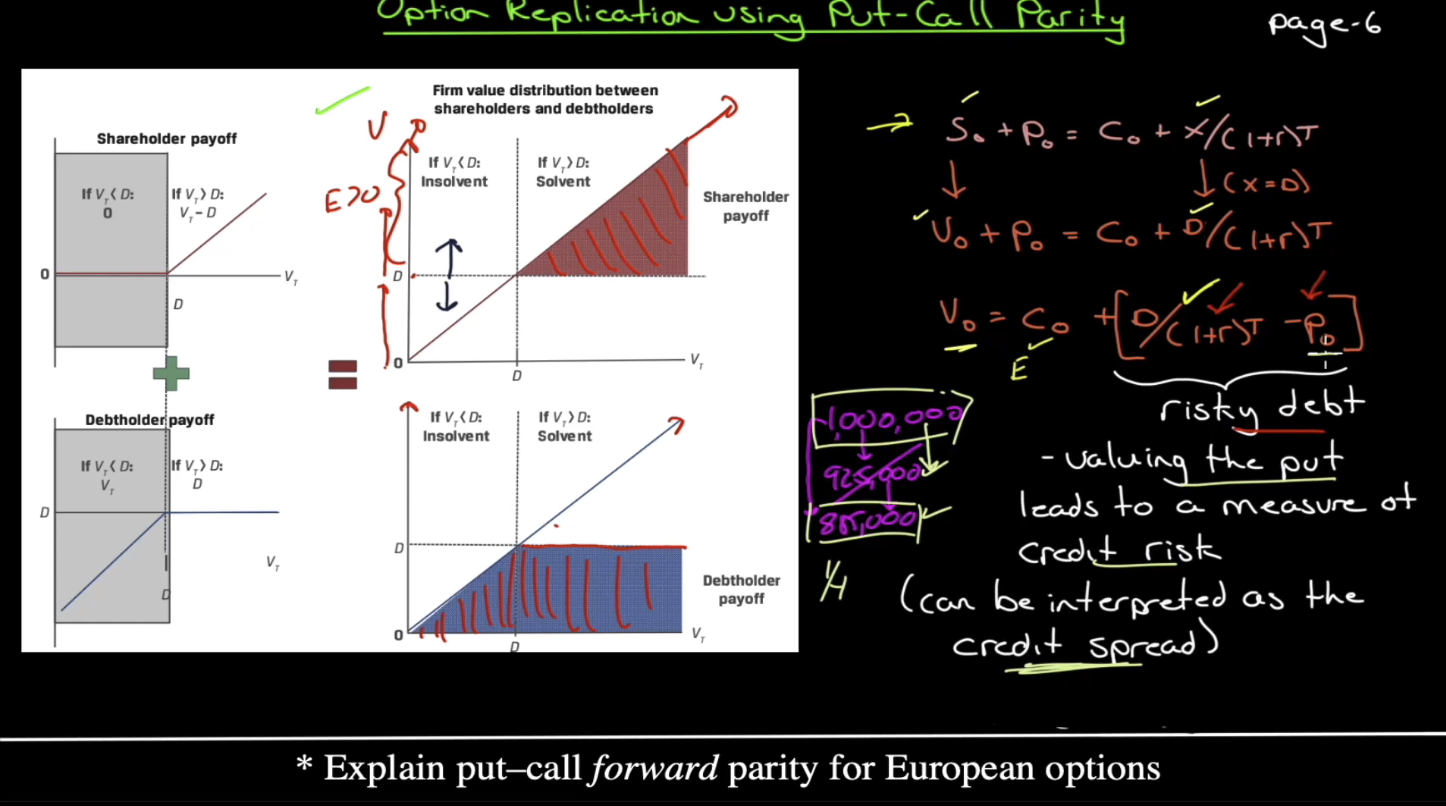 Option Replication using Put-Call Parity
page-6
Shareholder payoff
If V_T < D:
0
If V_T > D:
V_T – D
0
V_T
D
Debtholder payoff
If V_T < D:
V_T
If V_T > D:
D
D
V_T
D
Firm value distribution between
shareholders and debtholders
V
E>0
If V_T < D:
Insolvent
If V_T > D:
Solvent
Shareholder
payoff
D
0
D
V_T
If V_T < D:
Insolvent
If V_T > D:
Solvent
Debtholder
payoff
D
0
D
V_T
S₀ + P₀ = C₀ + X/(1+r)T
(X=D)
V₀ + P₀ = C₀ + D/(1+r)T
V₀ = C₀ + [D/(1+r)T - P₀]
E
risky debt
1,000,000
925,000
- valuing the put
leads to a measure of
credit risk
(can be interpreted as the
credit spread)
* Explain put–call forward parity for European options